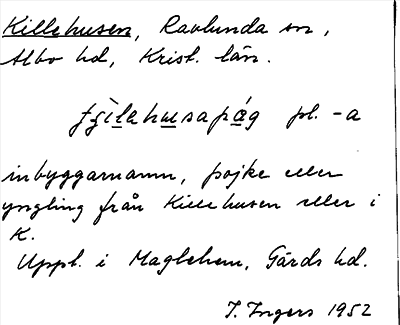 Killehusen, Ravlunda sn,
Albo hd, Krist. län.
pl. -a
inbyggarnamn, pojke eller
yngling från Killehusen eller i
K.
Uppt. i Maglehem, Gärds hd.
I. Ingers 1952